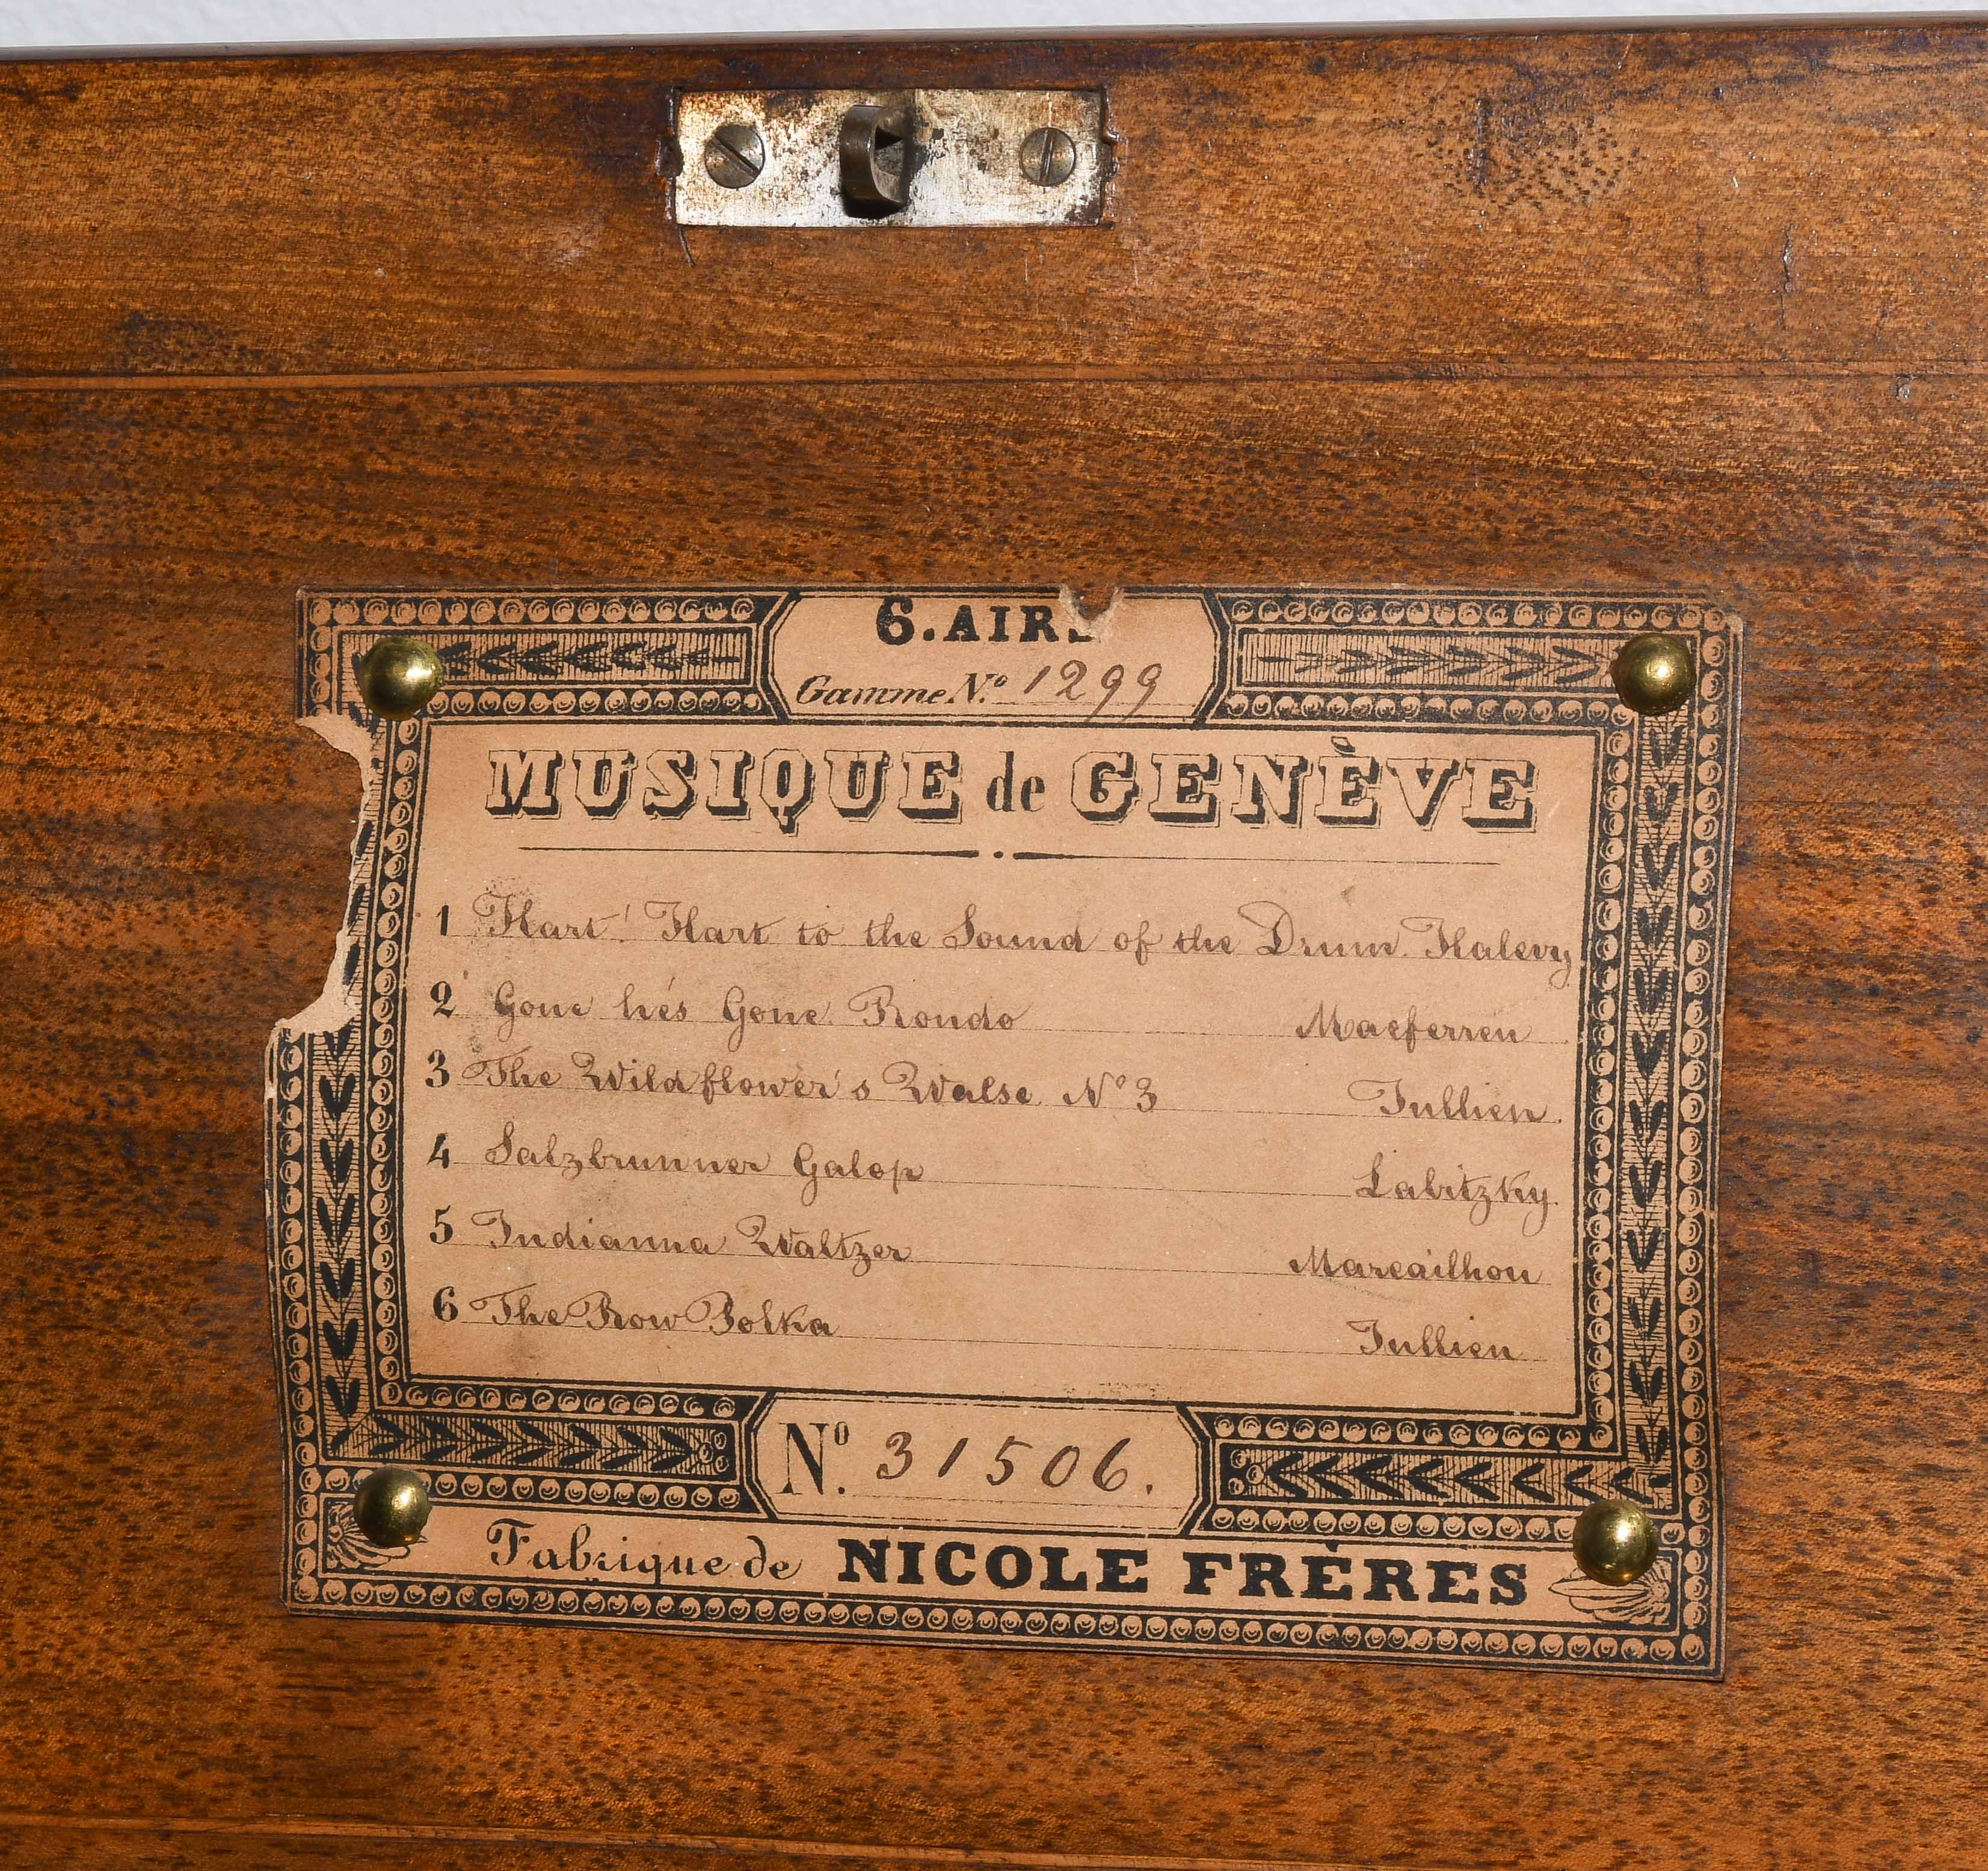 6. AIRS
Gamme N.º 1299
MUSIQUE de GENÈVE
1 Hart! Hart to the Sound of the Drum. Halevy
2 Gone he's Gone. Rondo Macferren
3 The Wild flower's Walse Nº 3 Jullien.
4 Salzbrunner Galop Labitzky.
5 Indianna Waltzer Marcailhou
6 The Row Polka Jullien
Nº. 31506.
Fabrique de NICOLE FRÈRES